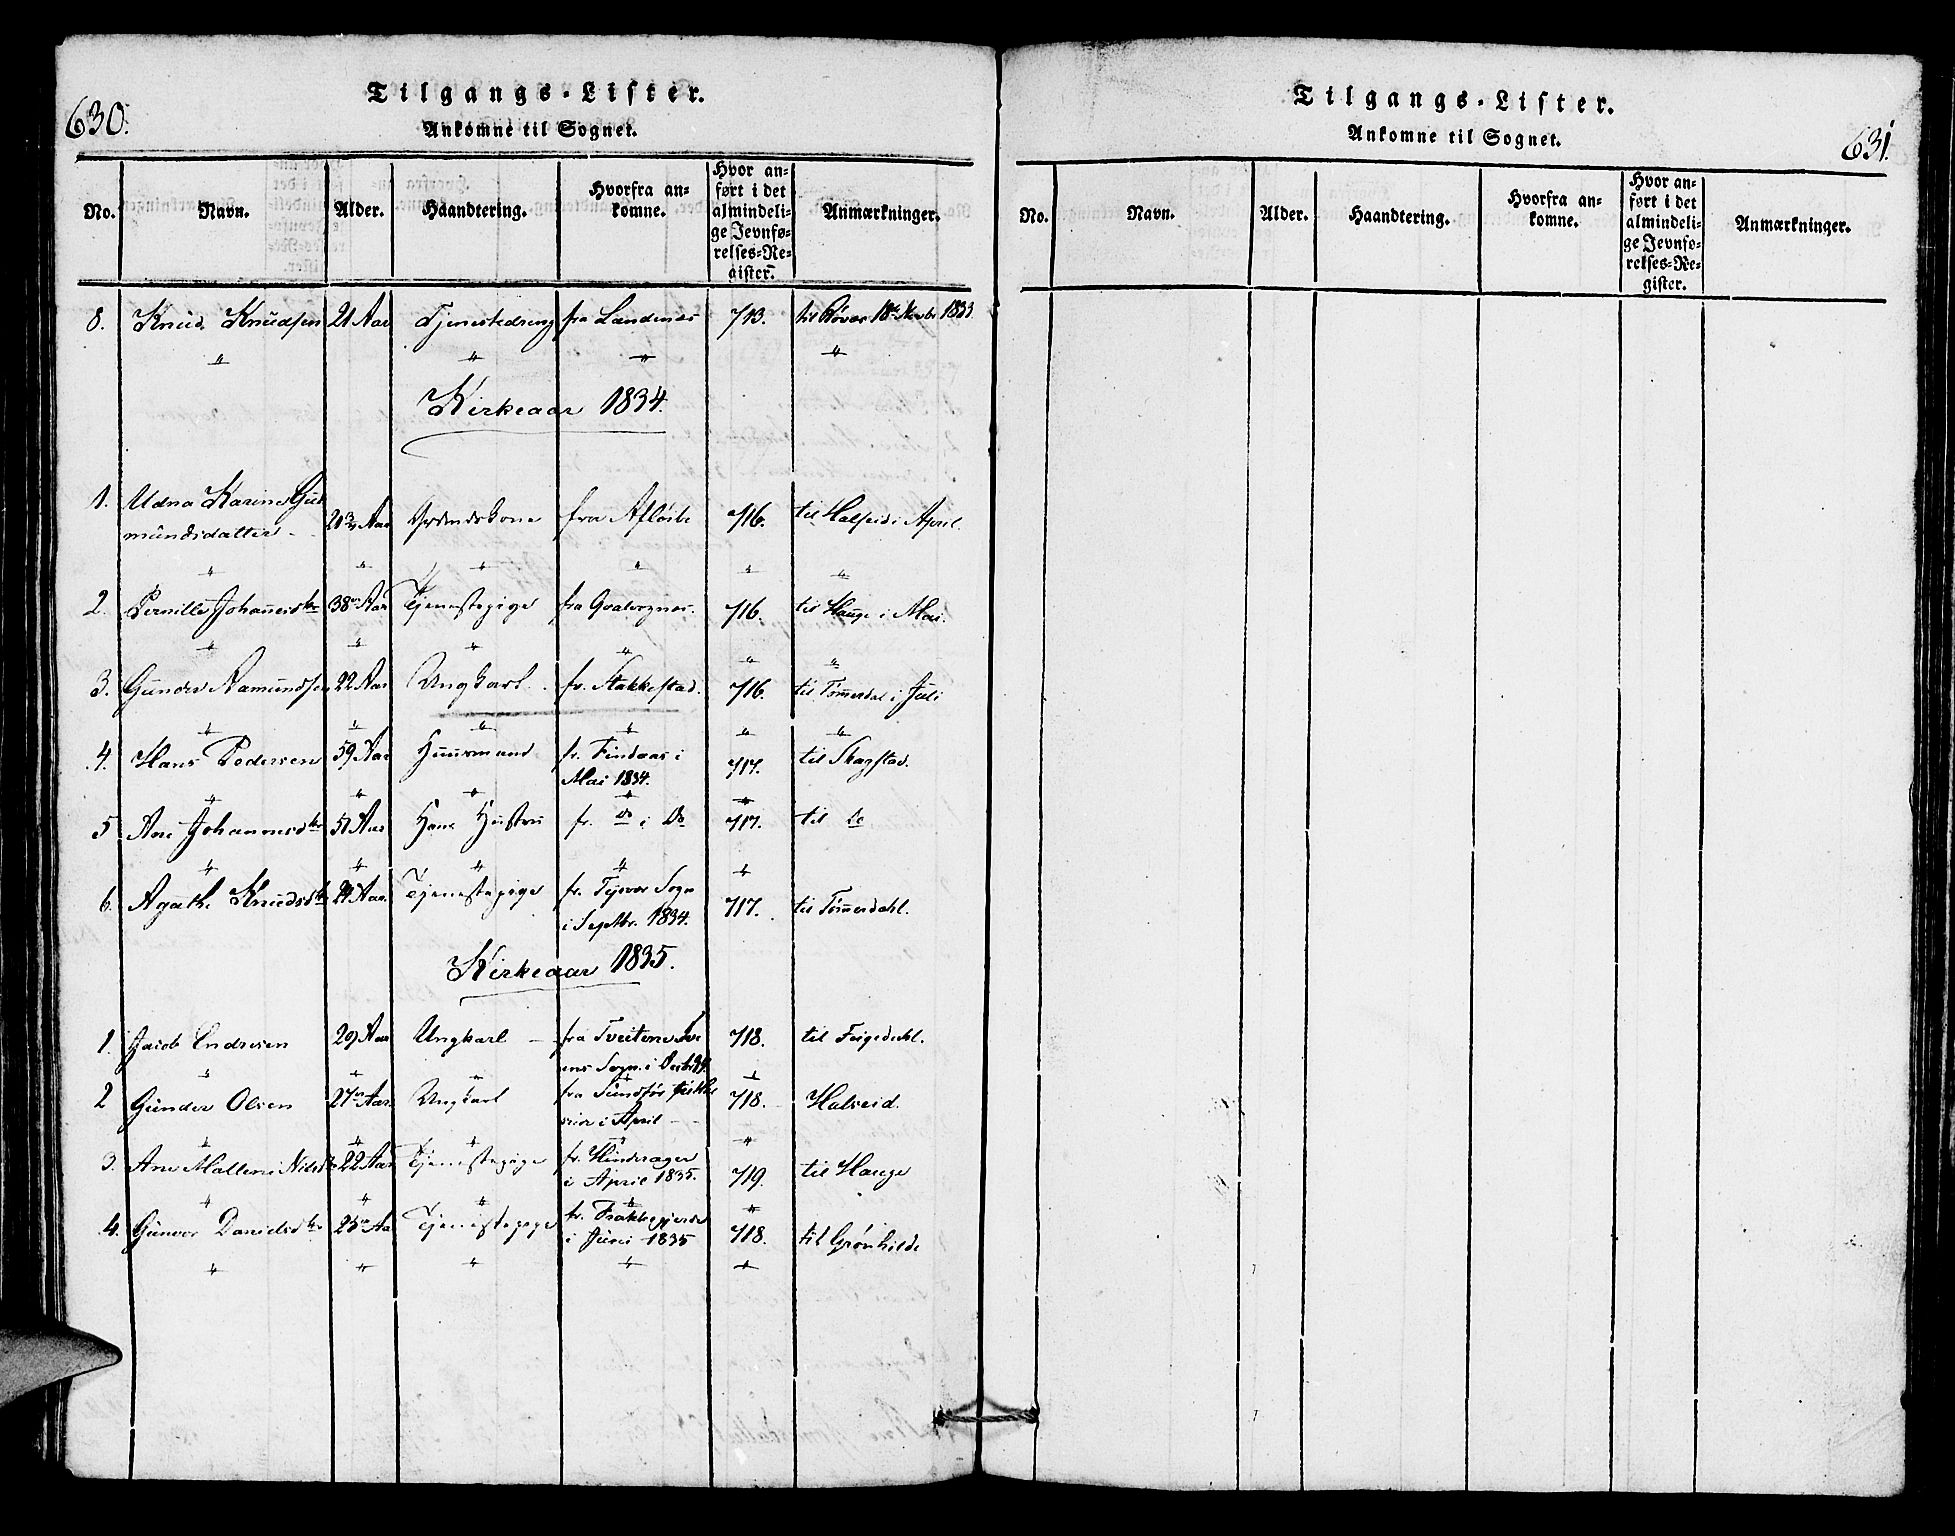 630.
Tilgangs-Lister.
Ankomne til Sognet.
No. Navn. Alder. Haandtering. Hvorfra an=komne. Hvor an=ført i det almindeli=ge Jevnfø=relses=Re=gister. Anmærkninger.
8. Knud Knudsen 21 Aar Tjenestedreng fra Landenes 713. til Røvær 18de Novbr 1833
" " " "
Kirkeaar 1834.
1. Udna Karine Gud
mundsdatter 21 Aar fra 716. til Halseid i April.
" " " " " "
2. Pernille Johannesdtr 38 Aar Tjenestepige fra 716. til Hauge i Mai.
" " " " " "
3. Gunder Aamundsen 22 Aar Ungkarl fr. Stakkestad. 716. til Tømmerdal i Juli
" " " " " "
4. Hans Pedersen 59 Aar Huusmand fr. Findaas i
Mai 1834. 717. til Skarstad.
" " " " "
5 Ane Johannesdtr 51 Aar Hans Hustru fr. do i Do 717. til do
" " " " "
6. Agathe Knudsdtr 24 Aar. Tjenestepige fr. Tysvær Sogn
i Septbr. 1834. 717. til Tømmerdahl.
Kirkeaar 1835.
1. Jacob Endresen 29 Aar Ungkarl fra Tveitene
ens Sogn i 718. til Feigedahl.
" " " "
2 Gunder Olsen 27 Aar. Ungkarl fra Sundfør
i April 718. Halseid.
" " " " "
3. Ane Malene Nilsd 22 Aar Tjenestepige fr. Hinderager
i April 1835. 719. til Hauge
" " " " "
4. Gunvor Danielsdtr 25 Aar Tjenestepige fr. Frakkagjerde
i Juni 1835 718. til Grønhilde
" " " " "
Tilgangs-Lister.
Ankomne til Sognet.
631.
No. Navn. Alder. Haandtering. Hvorfra an=komne. Hvor an=ført i det almindeli=ge Jevnfø=relses=Re=gister. Anmærkninger.